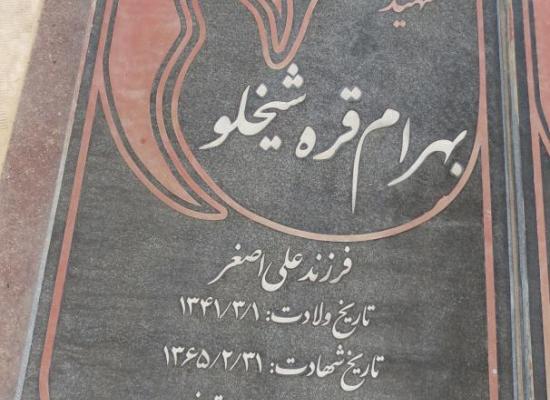 شهید
بهرام قره شیخلو
فرزند علی اصغر
تاریخ ولادت: ۱۳۴۱/۳/۱
تاریخ شهادت: ۱۳۶۵/۲/۳۱